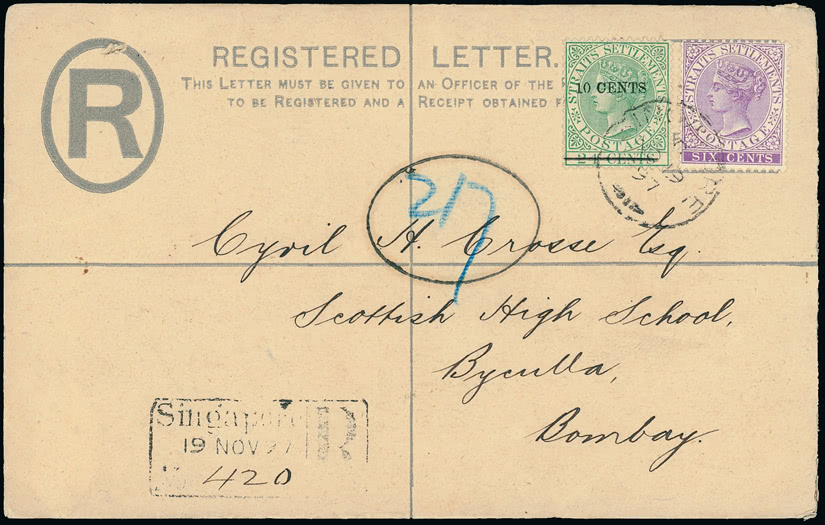 R
REGISTERED LETTER.
THIS LETTER MUST BE GIVEN TO AN OFFICER OF THE
TO BE REGISTERED AND A RECEIPT OBTAINED
STRAITS SETTLEMENTS
10 CENTS
POSTAGE
CENTS
STRAITS SETTLEMENTS
POSTAGE
SIX CENTS
97
217
Cyril H. Crosse Esq.
Scottish High School,
Byculla,
Bombay.
Singapore
19 NOV 97
No 420